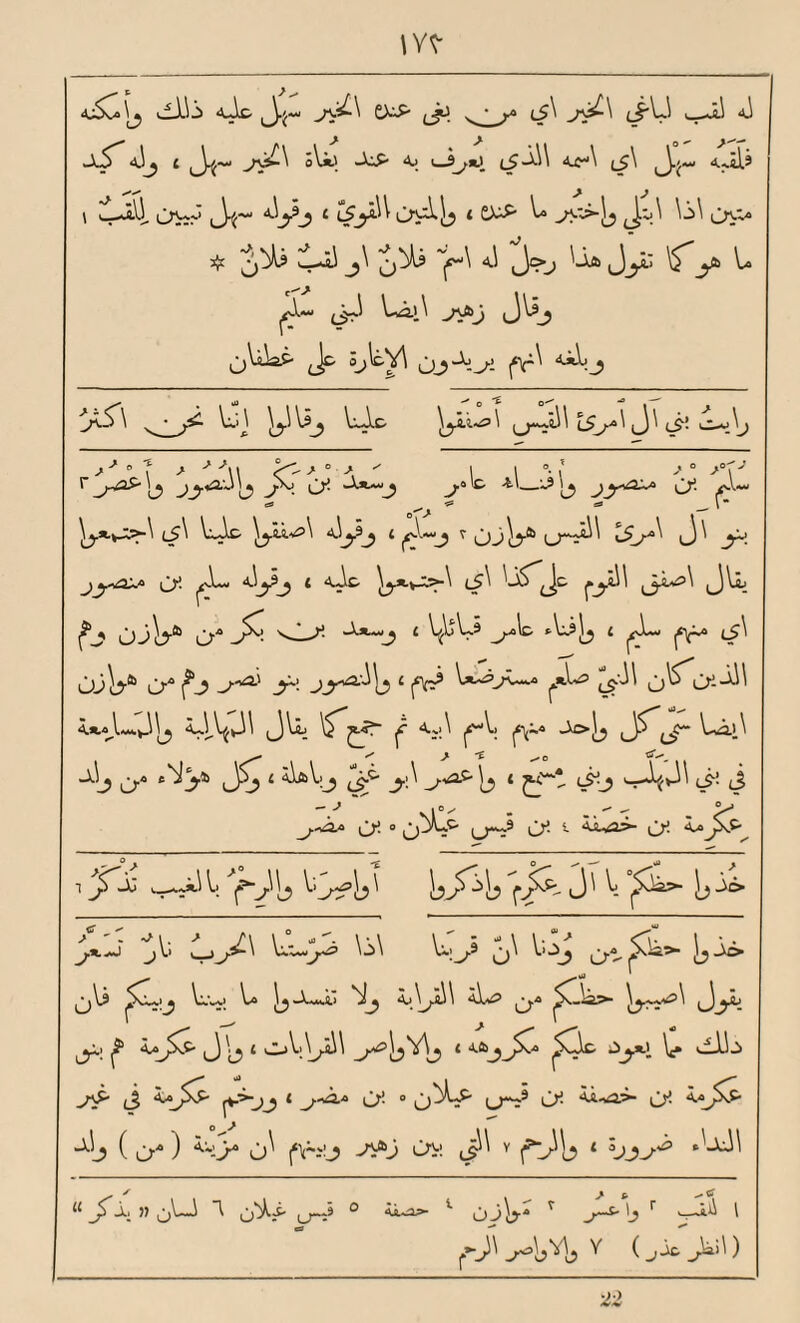 ١٧٣
له لقب لباغي الخير اي من يبغي عنده الخير سهل عليه ذلك وامكنه
فلقبه سهل اي اسمه الذي يعرف به عند بغاة الخير سهل ، وله كيد
متين اذا ابتلي واختبر ما عنده ، والمتين القوي ، وقوله سهل تبيين للقب ١
ما هو كما تقول هذا رجل له اسم فلان او لقب فلان *
وقال زهير ايضا لبني سليم
وبلغه انهم يريدون الاغارة على غطفان
رأيت بني آل امرئ القيس أصفقوا علينا وقالوا إننا نحن أكثر
سليم بن منصور وأفناء عامر وسعد بن بكر والنصور وأعصر ٢
بنو آل امرئ القيس هوازن ٣ وسليم ، وقوله اصفقوا علينا اي اجتمعوا
يقال اصفق القوم على كذا اي اجتمعوا عليه ، وقوله سليم بن منصور
اي منهم سليم ، وافناء عامر قبائلها ، وسعد بن بكر من هوازن وهم
الذين كان النبي صلعم مسترضعا فيهم ، والنصور بنو نصر وهم من هوازن
ايضا سمي كل واحد منهم باسم ابيه ثم جمع كما يقال المهالبة والمسامعة
في بني المهلب وبني مسمع ، واعصر ابو غني وباهلة ، وكل هؤلاء من ولد
عكرمة بن خصفة ٤ بن قيس عيلان ٥ بن مضر
خذوا حظكم يا آل عكرم واذكروا أواصرنا والرحم بالغيب تذكر ٦
خذوا حظكم من ودنا ان قربنا اذا ضرستنا الحرب نار تسعر
يقول اصيبوا حظكم من صلة القرابة ولا تفسدوا ما بيننا وبينكم فان
ذلك مما يعود عليكم مكروهه ، والاواصر القرابات ، وآل عكرمة هم بنو
عكرمة بن خصفة بن قيس عيلان ٥ بن مضر ، ورخم عكرمة في غير
النداء ضرورة ، والرحم ٧ التي بين زهير وبينهم ان مزينة (من) ولد
١ للقب ٢ واعصر ٣ هوازن ٤ خصفة ٥ قيس عيلان ٦ لسان « يذكر »
(انظر عذر) ٧ والاواصر الرحم
22